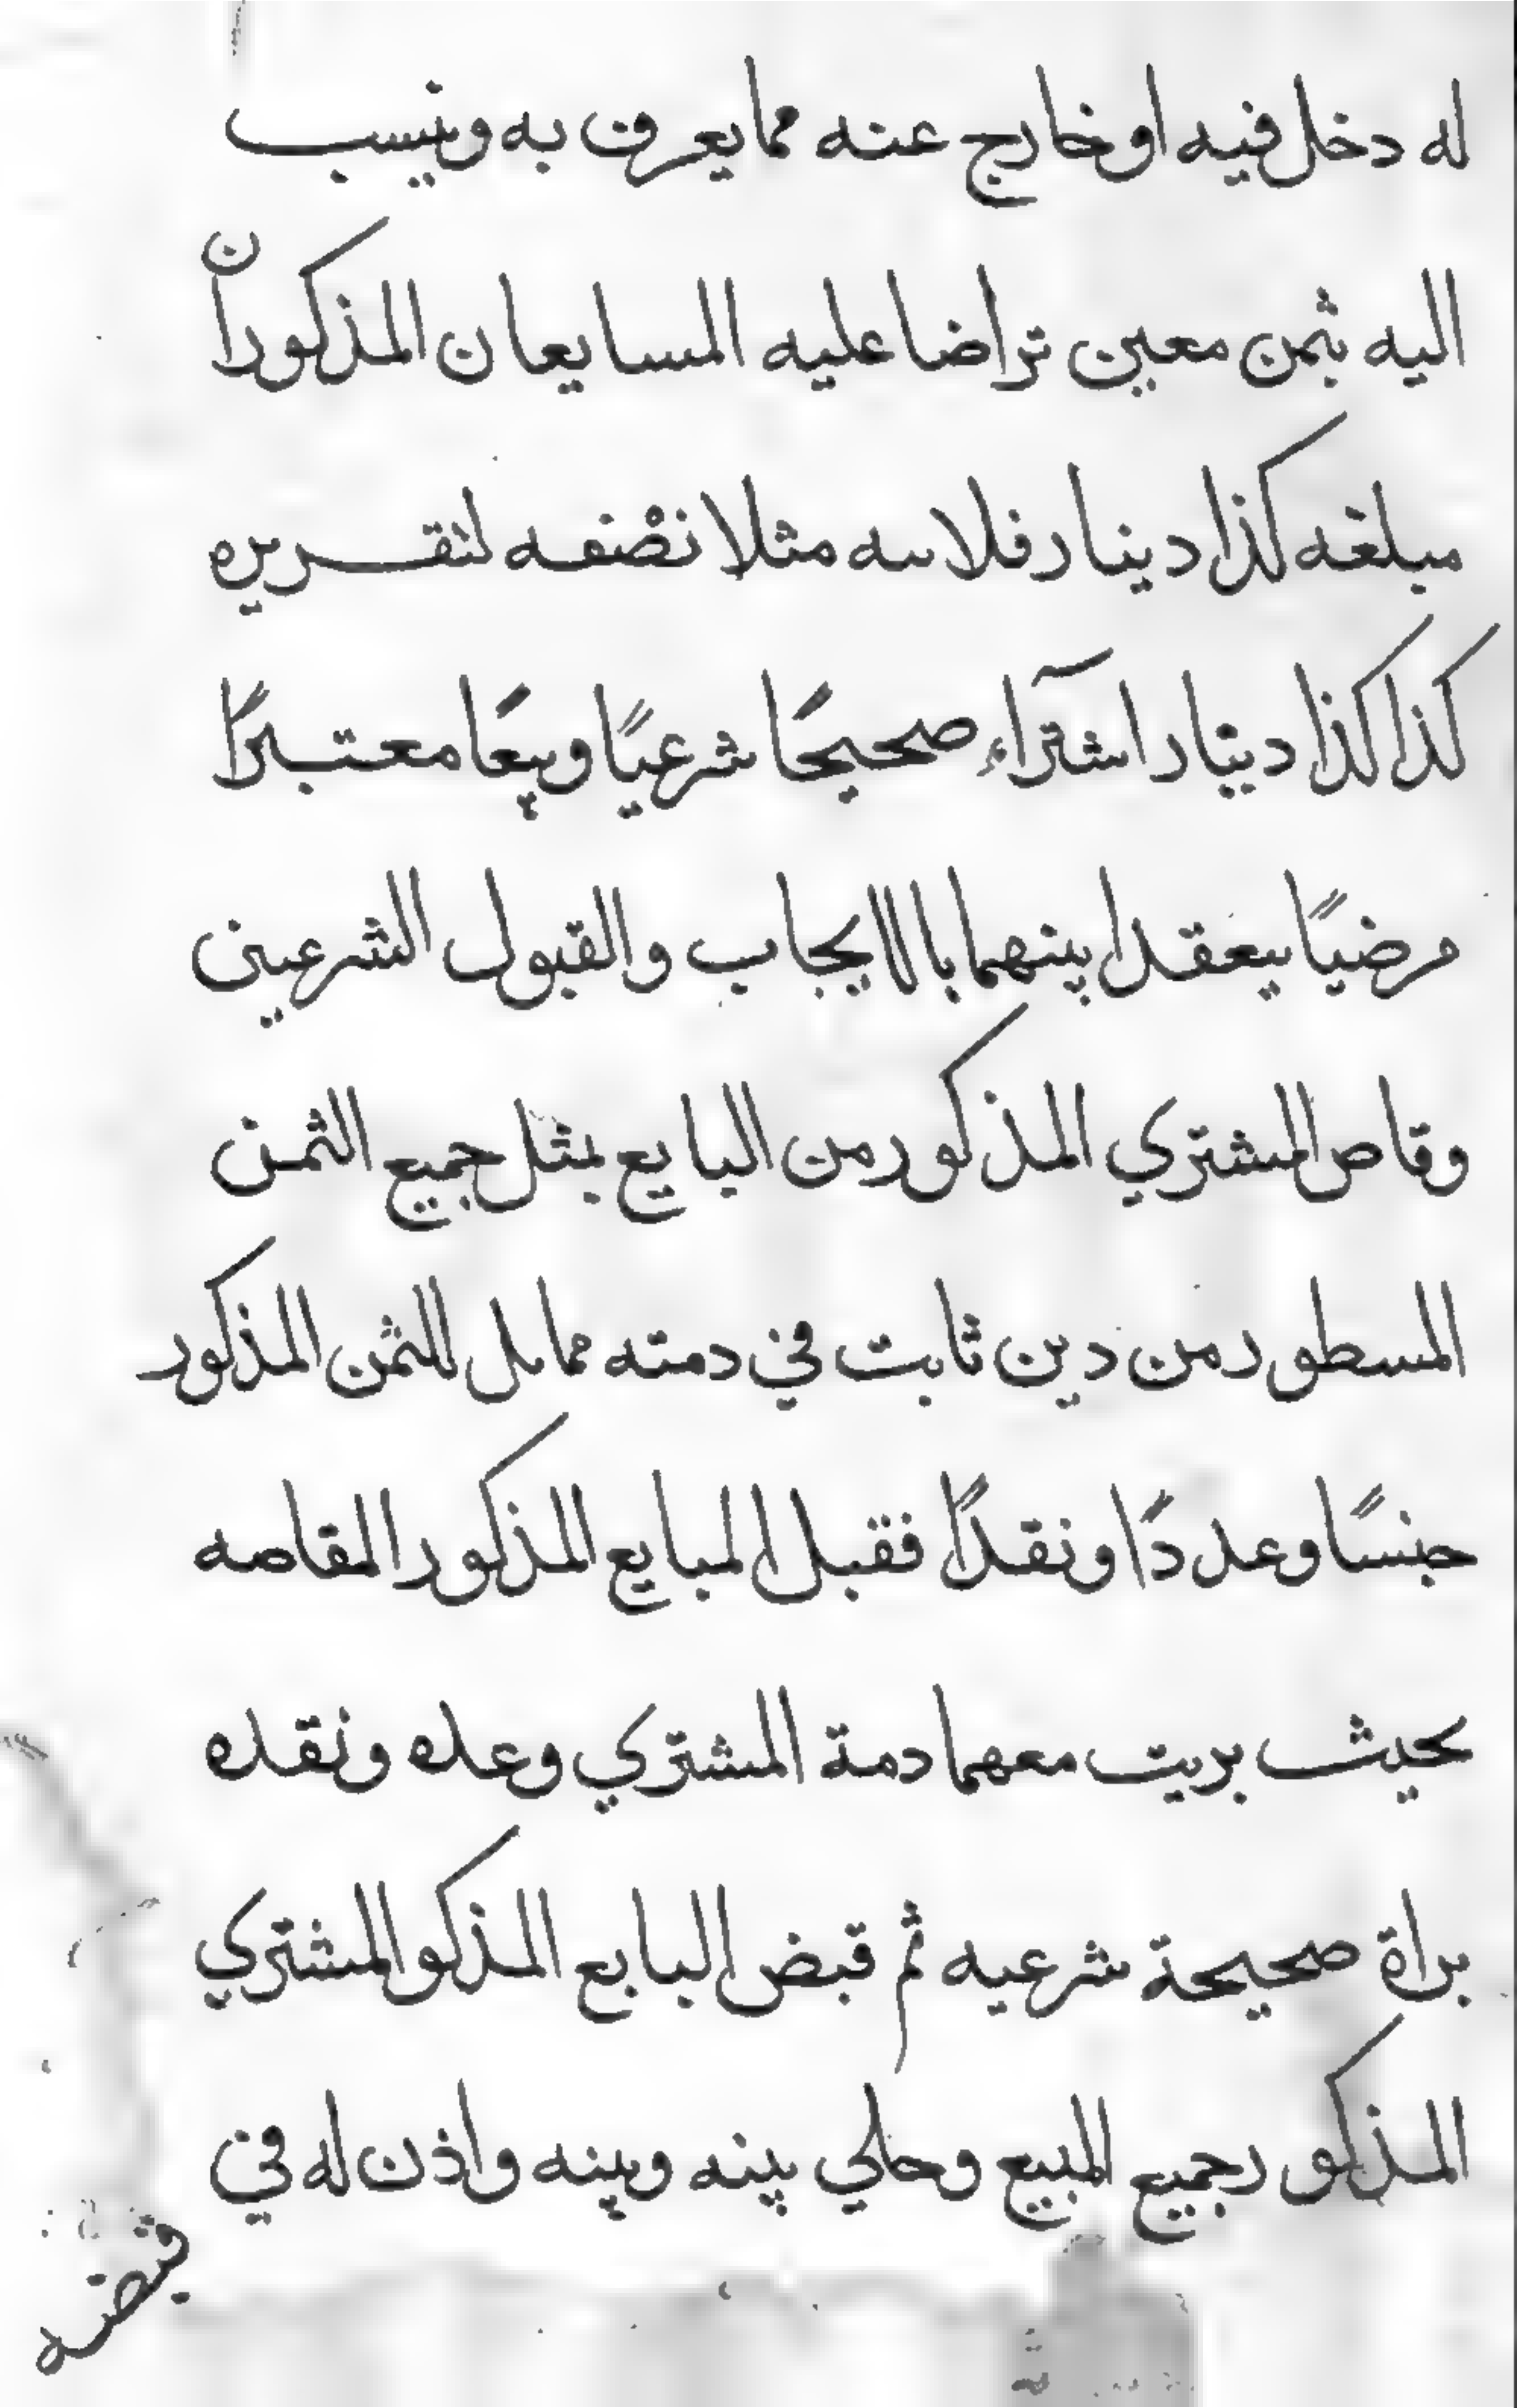 له دخل فيه او خارج عنه مما يعرف به وينسب
اليه بثمن معين تراضا عليه المسايعان المذكوران
مبلغه كذا دينار فلاسه مثلا نصفه لتقريره
كذا كذا دينار اشتراء صحيحًا شرعيًا وبيعًا معتبرًا
مرضيًا بيعقدا بينهما بالايجاب والقبول الشرعين
وقاص المشتري المذكور من البايع بمثل جميع الثمن
المسطور من دين ثابت في دمته مماىل للثمن المذكور
جنسًا وعددًا ونقدًا فقبل المبايع المذكور المقاصه
بحيث بريت معهما دمة المشتري وعده ونقده
براة صحيحة شرعيه ثم قبض البايع المذكو المشتري
المذكور جميع المبيع وخلي بينه وبينه واذن له في
قبضه